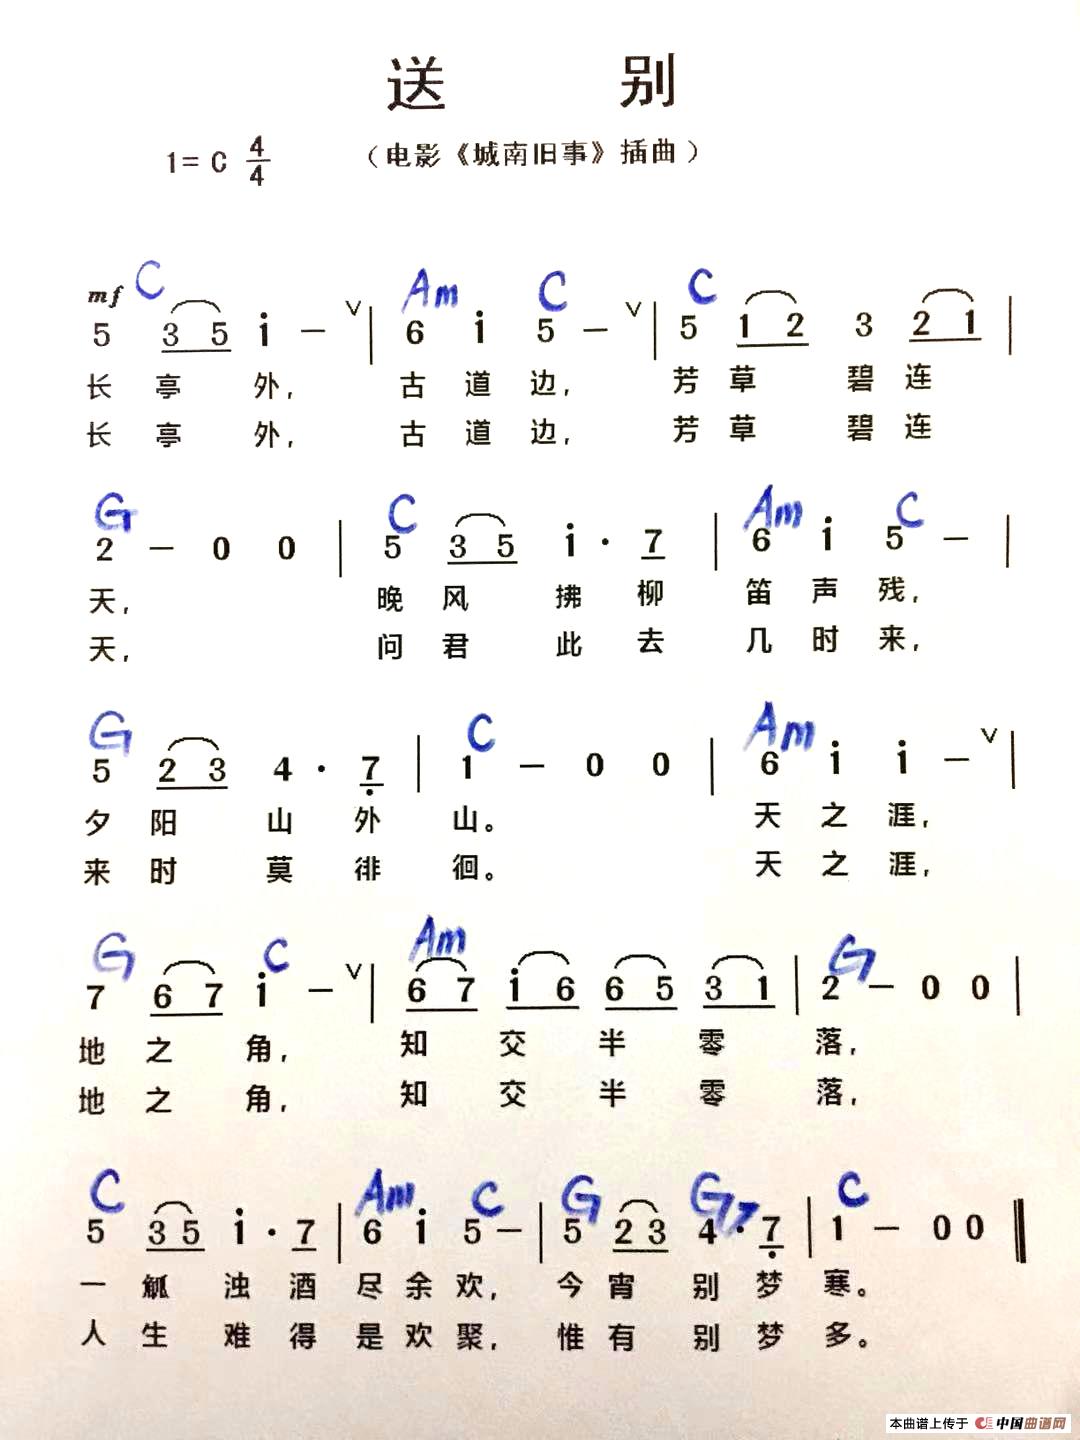 送 别
1=C 4/4 （电影《城南旧事》插曲）
mf C Am C C
5 3 5 i － ∨ | 6 i 5 － ∨ | 5 1 2 3 2 1 |
长 亭 外, 古 道 边, 芳 草 碧 连
长 亭 外, 古 道 边, 芳 草 碧 连
G C Am C
2 － 0 0 | 5 3 5 i · 7 | 6 i 5 － |
天, 晚 风 拂 柳 笛 声 残,
天, 问 君 此 去 几 时 来,
G C Am
5 2 3 4 · 7 | 1 － 0 0 | 6 i i － ∨ |
夕 阳 山 外 山。 天 之 涯,
来 时 莫 徘 徊。 天 之 涯,
G C Am G
7 6 7 i － ∨ | 6 7 i 6 6 5 3 1 | 2 － 0 0 |
地 之 角, 知 交 半 零 落,
地 之 角, 知 交 半 零 落,
C Am C G G7 C
5 3 5 i · 7 | 6 i 5 － | 5 2 3 4 · 7 | 1 － 0 0 ‖
一 觚 浊 酒 尽 余 欢, 今 宵 别 梦 寒。
人 生 难 得 是 欢 聚, 惟 有 别 梦 多。
本曲谱上传于 中国曲谱网